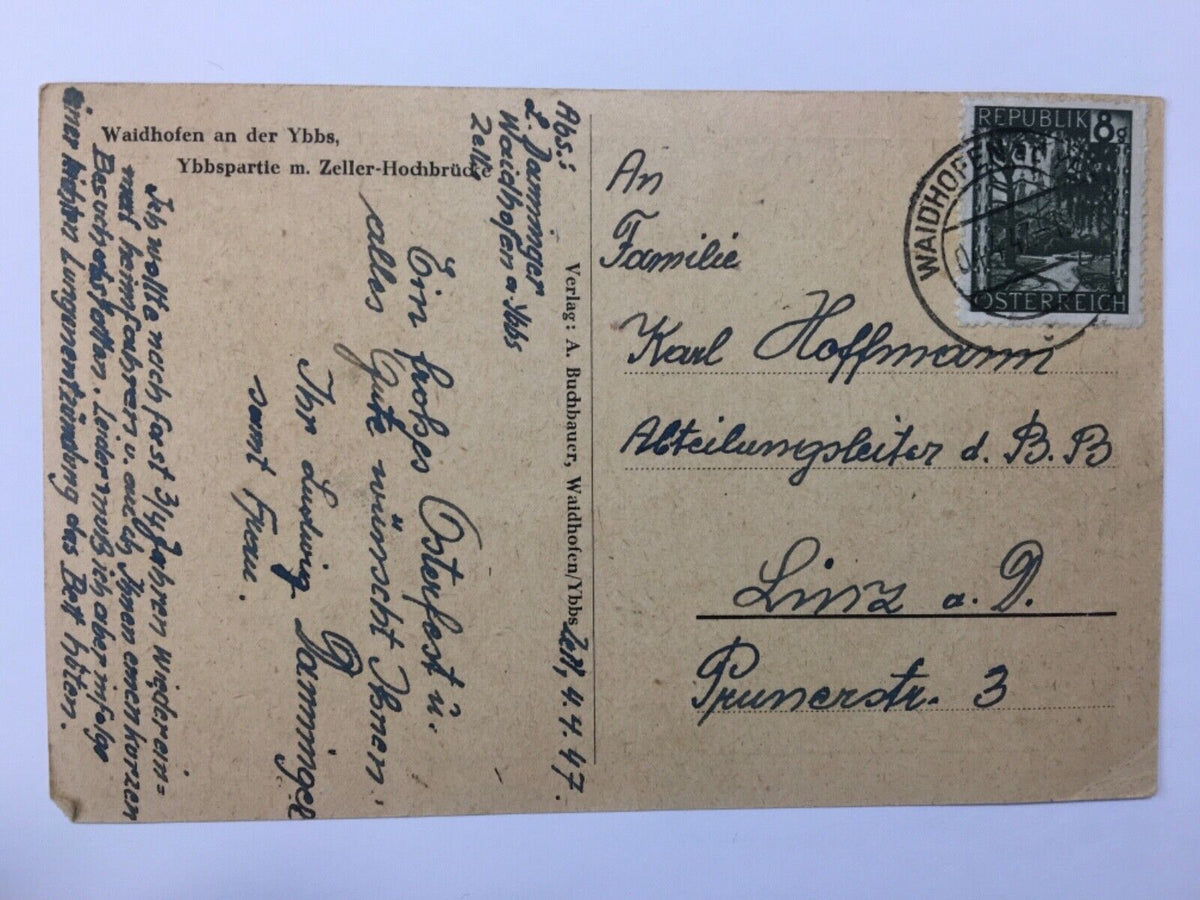 Waidhofen an der Ybbs,
Ybbspartie m. Zeller-Hochbrücke
Abs.:
L. Jamminger
Waidhofen a. Ybbs
Zelle
Verlag: A. Buchbauer, Waidhofen/Ybbs
Zell, 4. 4. 47.
Ein frohes Osterfest u.
alles Gute wünscht Ihnen
Ihr Ludwig Jamminger
samt Frau.
Ich wollte nach fast 3/4 Jahren wieder ein=
mal heimfahren u. auch Ihnen einen kurzen
Besuch abstatten. Leider muß ich aber infolge
einer Lungenentzündung das Bett hüten.
An
Familie
Karl Hoffmann
Abteilungsleiter d. B. B
Linz a. D.
Prunerstr. 3
REPUBLIK 8g
ÖSTERREICH
WAIDHOFEN